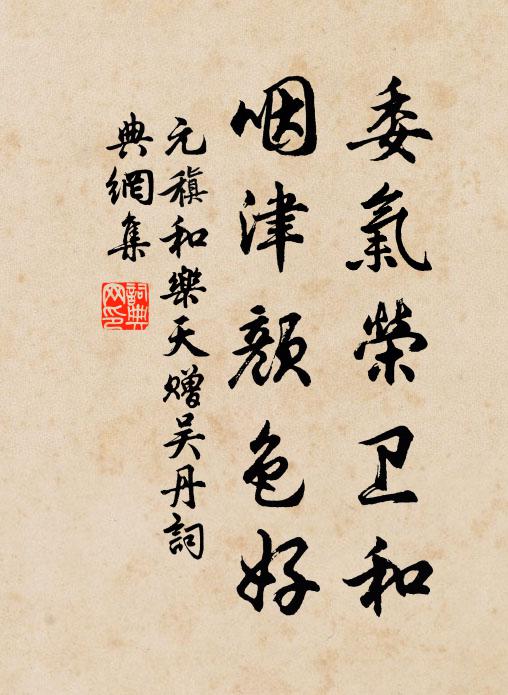 委氣榮卫和
咽津顏色好
元稹和樂天赠吴丹詞
典網集
詞典
网印